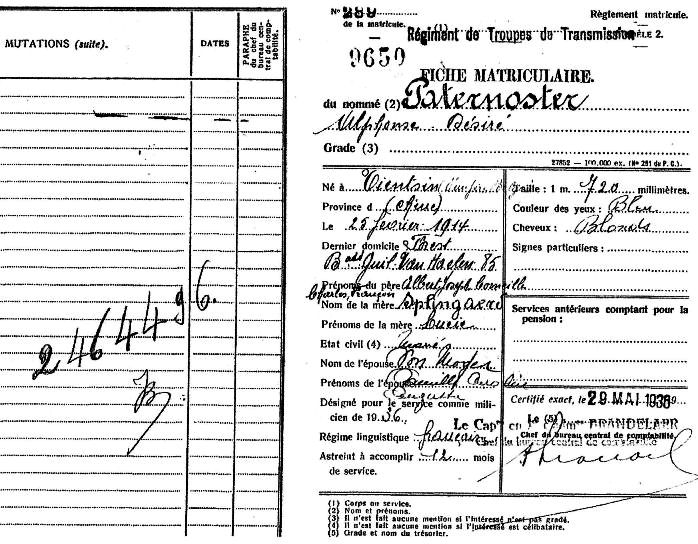 MUTATIONS (suite).
DATES
PARAPHE
du chef du
bureau cen-
tral de comp-
tabilité.
246449 6.
No 289
de la matricule.
9650
Règlement matricule.
Régiment de Troupes de Transmission
MODÈLE 2.
FICHE MATRICULAIRE.
du nommé (2) Paternoster
Alphonse Désiré
Grade (3)
27852 — 100,000 ex. (No 251 du P. C.)
Né à Tientsin
Province d (Chine)
Le 25 février 1914
Dernier domicile Forest
Bard Guil. Van Haelen 85
Prénoms du père Albert Joseph Corneille
Charles François
Nom de la mère Splingaerd
Prénoms de la mère Lucie
Etat civil (4)
Nom de l'épouse Von
Prénoms de l'épouse
Augusta
Désigné pour le service comme mili-
cien de 1936.
Régime linguistique français
Astreint à accomplir 12 mois
de service.
Taille : 1 m. 720 millimètres.
Couleur des yeux : Bleu
Cheveux : Blonds
Signes particuliers :
Services antérieurs comptant pour la
pension :
Certifié exact, le 29 MAI 1936
Le (5)
Le Cap
Chef du bureau central de comptabilité
(1) Corps ou service.
(2) Nom et prénoms.
(3) Il n'est fait aucune mention si l'intéressé n'est pas gradé.
(4) Il n'est fait aucune mention si l'intéressé est célibataire.
(5) Grade et nom du trésorier.